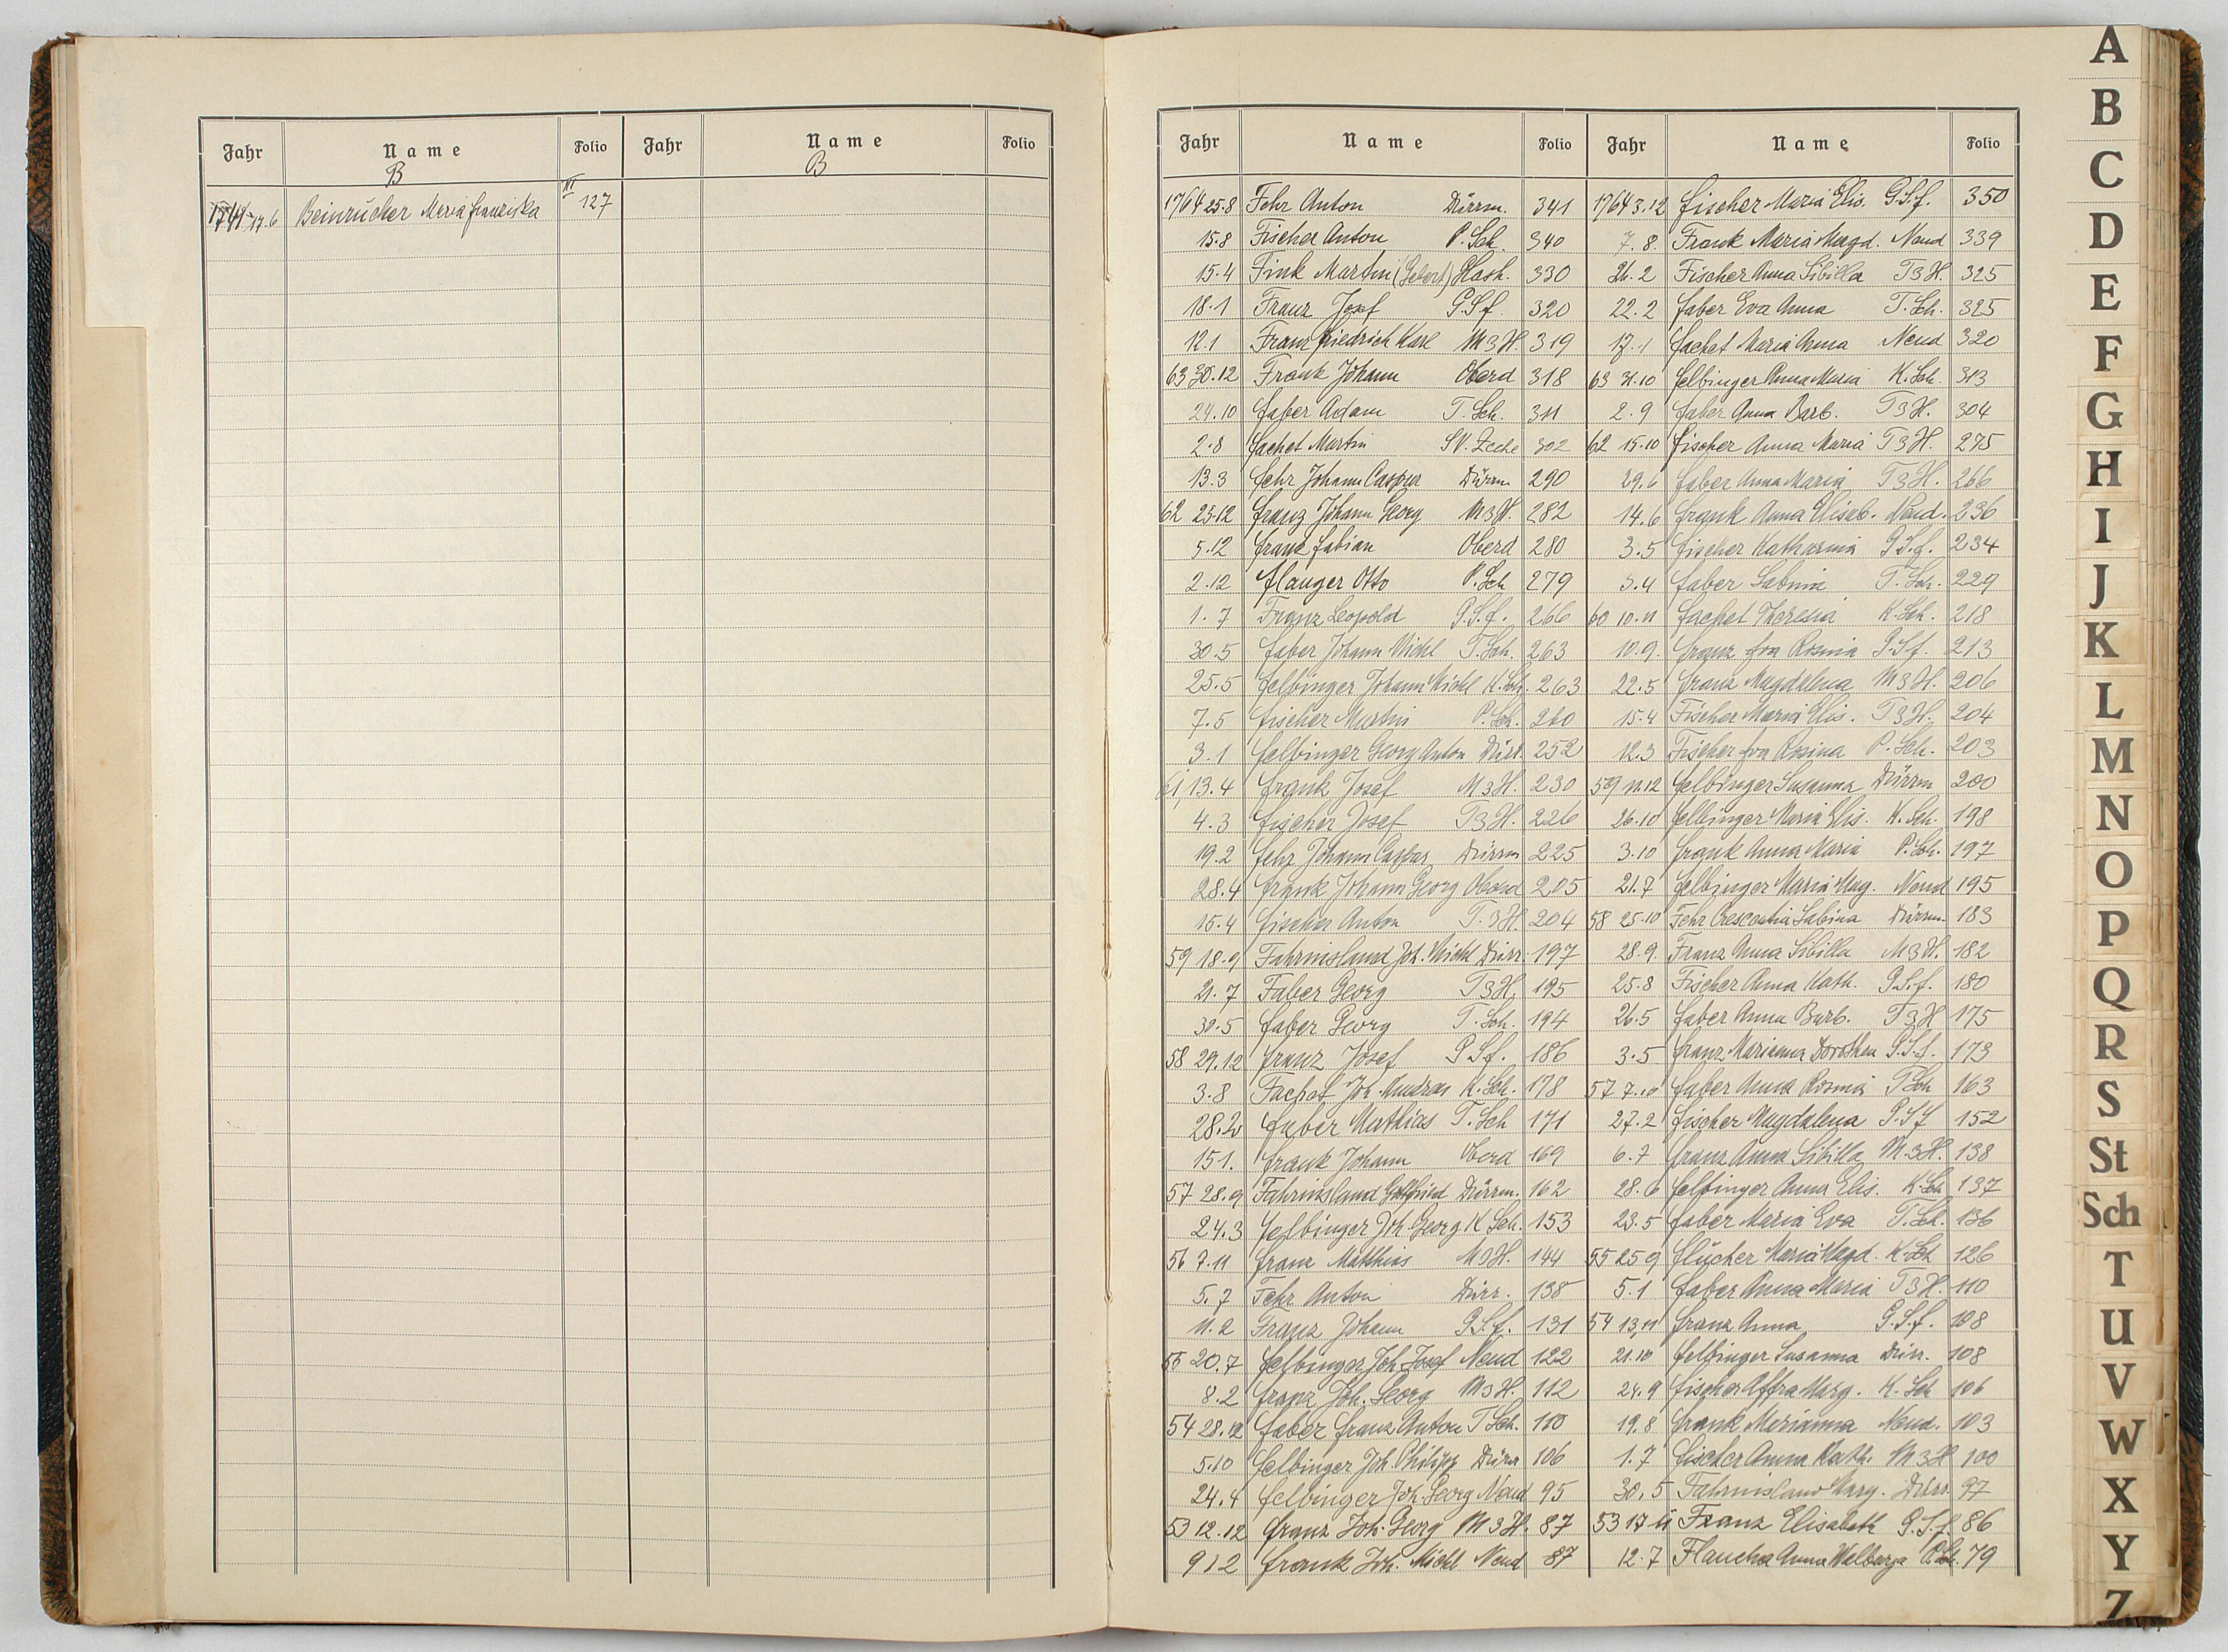 Jahr Name Folio Jahr Name Folio
B B
17.6 Beinrücker Maria Franziska III 127
Jahr Name Folio Jahr Name Folio
1764 25.8 Fehr Anton Dürrm. 341 1764 3.12 Fischer Maria Elis. G.S.f. 350
15.8 Fischer Anton P. Sch. 340 7.8. Frank Maria Magd. Neud 339
15.4 Fink Martin (Gebert) Hosh. 330 26.2 Fischer Anna Sibilla T3H. 325
18.1 Franz Josef G.S.f. 320 22.2 Faber Eva Anna T. Sch. 325
12.1 Franz Friedrich Karl M3H. 319 17.1 Fachet Maria Anna Neud 320
63 30.12 Frank Johann Oberd 318 63 31.10 Felbinger Anna Maria K. Sch. 313
24.10 Faber Adam T. Sch. 311 2.9 Faber Anna Barb. T3H. 304
2.8 Fachet Martin SV. Zeche 302 62 15.10 Fischer Anna Maria T3H. 275
13.3 Fehr Johann Caspar Dürrm 290 29.6 Faber Anna Maria T3H. 266
62 25.12 Franz Johann Georg M3H. 282 14.6 Frank Anna Elisab. Neud. 236
5.12 Frank Fabian Oberd 280 3.5 Fischer Katharina G.S.f. 234
2.12 Flauger Otto P. Sch 279 5.4 Faber Sabina T. Sch. 229
1.7 Franz Leopold G.S.f. 266 60 10.11 Fachet Theresia K. Sch. 218
30.5 Faber Johann Michl T. Sch. 263 10.9. Franz Eva Rosina G.S.f. 213
25.5 Felbinger Johann Michl K. Sch. 263 22.5 Franz Magdalena M3H. 206
7.5 Fischer Martin P. Sch. 260 15.4 Fischer Maria Elis. T3H. 204
3.1 Felbinger Georg Anton Dürr. 252 12.3 Fischer Eva Rosina P. Sch. 203
61, 13.4 Frank Josef M3H. 230 59 11.12 Felbinger Susanna Dürrm 200
4.3 Fischer Josef T3H. 226 26.10 Felbinger Maria Elis. K. Sch. 198
19.2 Fehr Johann Caspar Dürrm 225 3.10 Frank Anna Maria P. Sch. 197
28.4 Frank Johann Georg Oberd 205 21.7 Felbinger Maria Mag. Neud 195
15.4 Fischer Anton T.3H. 204 58 25.10 Fehr Crescentia Sabina Dürrm. 183
59 18.9 Fahrnisland Joh. Michl Dürr. 197 28.9. Franz Anna Sibilla M3H. 182
21.7 Faber Georg T3H. 195 25.8 Fischer Anna Kath. G.S.f. 180
30.5 Faber Georg T. Sch. 194 26.5 Faber Anna Barb. T3H 175
58 29.12 Franz Josef G.S.f. 186 3.5 Franz Marianna Dorothea G.S.f. 173
3.8 Fachet Joh. Andreas K. Sch. 178 57 7.10 Faber Anna Rosina T Sch 163
28.2 Faber Mathias T. Sch 171 27.2 Fischer Magdalena G.S.f 152
15.1. Frank Johann Oberd 169 6.7 Franz Anna Sibilla M.3H. 138
57 28.9 Fahrnisland Gottfried Dürrm. 162 28.6 Felbinger Anna Elis. K. Sch 137
24.3 Felbinger Joh. Georg K Sch. 153 23.5 Faber Maria Eva T. Sch. 136
56 7.11 Franz Matthias M3H. 144 55 25 9 Flücher Maria Magd. K. Sch 126
5.7 Fehr Anton Dürr. 138 5.1 Faber Anna Maria T3H. 110
11.2 Franz Johann G.S.f. 131 54 13,11 Franz Anna G.S.f. 108
55 20.7 Felbinger Joh. Josef Neud 122 21.10 Felbinger Susanna Dürr. 108
8.2 Franz Joh. Georg M3H. 112 24.9 Fischer Affra Marg. K. Sch 106
54 28.12 Faber Franz Anton T Sch. 110 19.8 Frank Marianna Neud. 103
5.10 Felbinger Joh. Philipp Dürr 106 1.7 Fischer Anna Kath. M3H 100
24.4 Felbinger Joh. Georg Neud 95 30.5 Fahrnisland Marg. Dürr. 97
53 12.12 Franz Joh. Georg M3H. 87 53 17 11 Franz Elisabeth G.S.f. 86
9 12 Frank Joh. Michl Neud 87 12.7 Flaucher Anna Walburga P.Sch. 79
A
B
C
D
E
F
G
H
I
J
K
L
M
N
O
P
Q
R
S
St
Sch
T
U
V
W
X
Y
Z